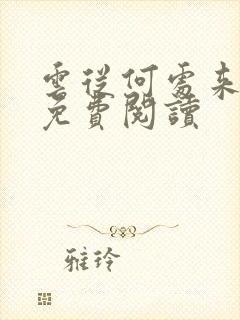 雲從何處来
免費閱讀
雅玲